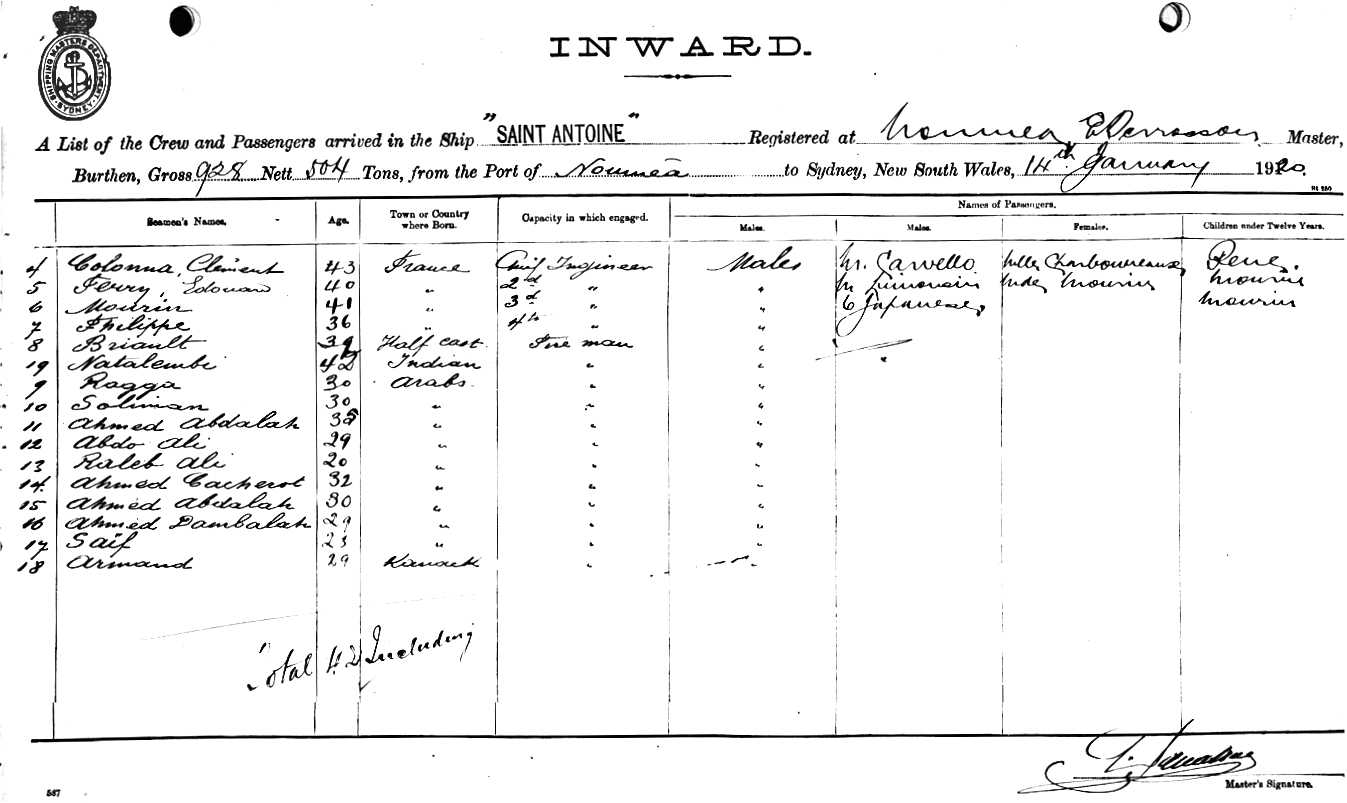 SHIPPING MASTERS DEPARTMENT SYDNEY
INWARD.
A List of the Crew and Passengers arrived in the Ship "SAINT ANTOINE" Registered at Noumea Master,
Burthen, Gross 928 Nett 504 Tons, from the Port of Nouméa to Sydney, New South Wales, 14th January 1920.
Seamen's Names. Age. Town or Country where Born. Capacity in which engaged. Names of Passengers.
Males. Males. Females. Children under Twelve Years.
4 Colonna, Clément 43 France Chief Ingineer Males Mr. Carvello Melle Charboureaux René
5 Ferry, Edouard 40 " 2nd " " M Limousin Mdes Mourin Mourin
6 Mourin 41 " 3d " " 6 Japanese, Mourin
7 Philippe 36 " 4th " "
8 Briault Half cast Fire man "
19 Natalembi 42 Indian " "
9 Ragga 30 Arabs " "
10 Soliman 30 " " "
11 Ahmed Abdalah 35 " " "
12 Abdo Ali 29 " " "
13 Raleb Ali 20 " " "
14. Ahmed Cacherot 32 " " "
15 Ahmed Abdalah 30 " " "
16 Ahmed Dambalah 29 " " "
17 Saïf 23 " " "
18 Armand 29 Kanack "
Total 42 Including
Master's Signature.
587